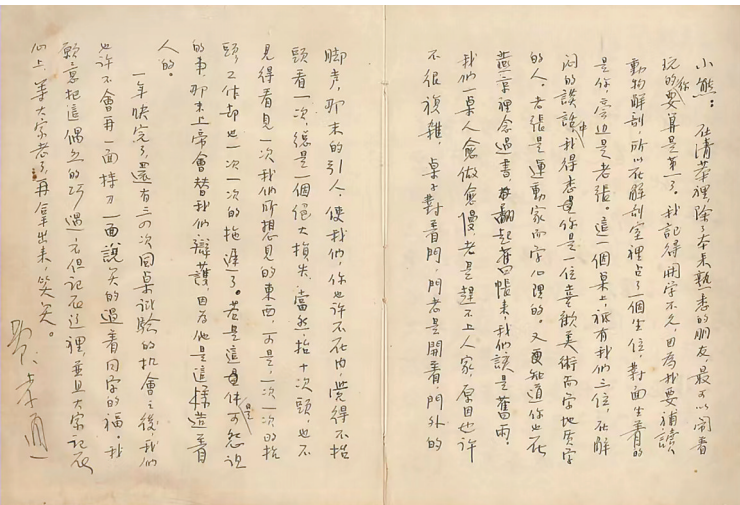 小熊：在清華裡，除了本來熟悉的朋友，最可以鬧着
玩的，你要算是第一了。我記得開学不久，因為我要補讀
動物解剖，所以在解剖室裡占了一個坐位，對面坐着的
是你，旁边是老張。這一個桌上，祇有我們三位，在解
悶的談談中，我得悉你是一位喜歡美術而学地质学
的人。老張是運動家而学心理的。又知道你也在
燕京裡念過書，翻起舊帳來，我們該是舊雨。
我们一桌人愈做愈慢，老是趕不上人家，原因也许
不很複雜，桌子對着門，門老是開着，門外的
脚声，那末的引人，使我們，你也许不在内，覺得不抬
頭看一次，總是一個絕大損失，當然，抬十次頭，也不
見得看見一次我們所想見的東西，可是，一次一次的抬
頭，工作却也一次一次的拖進了。若是這是件可怨诅
的事，那末上帝會替我们辯護，因为他是這樣造着
人的。
一年快完了，還有三四次同桌试驗的机會之後，我们
也许不會再一面持刀一面說笑的過着同学的福。我
願意把這偶然的巧遇，不但记在這裡，並且大家记在
心上，等大家老了，再拿出来，笑笑。
費孝通